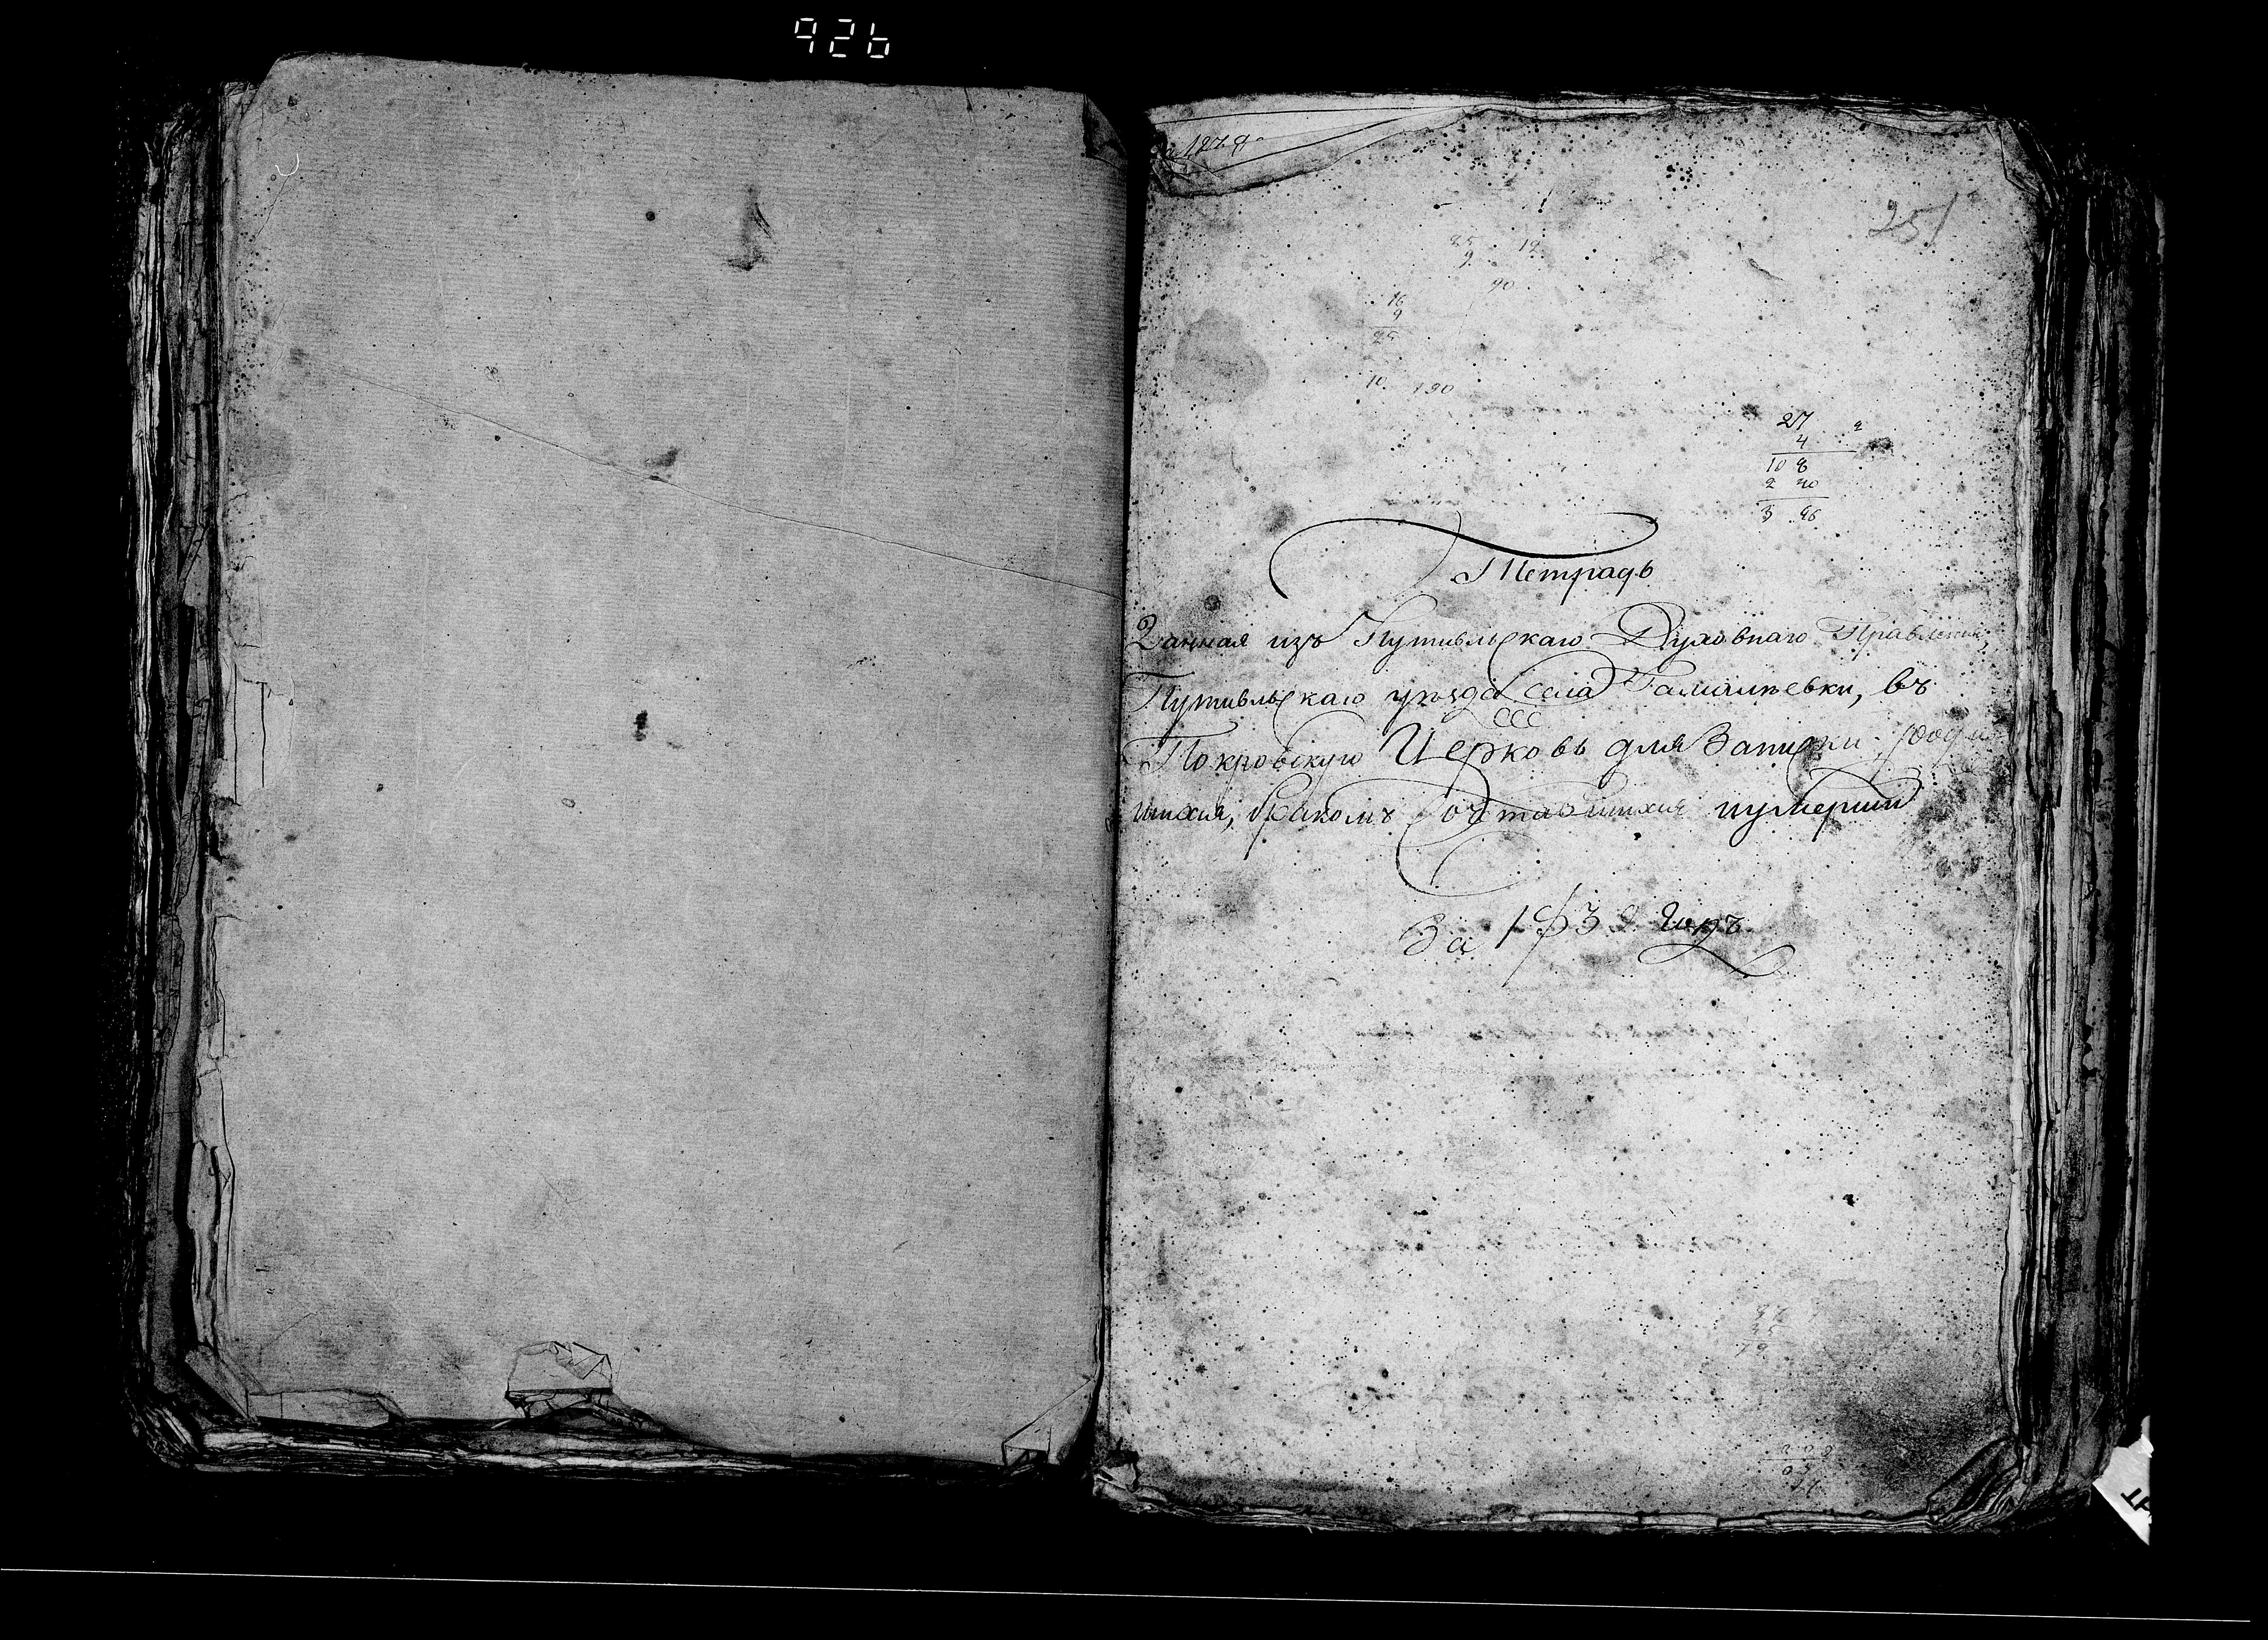 926
251
25 12
9
90
16
9
25
10. 190
27
4
10 8
2
3 96
Тетрадь
Данная изъ Путивльскаго Духовнаго Правления,
Путивльскаго уѣзда села въ
Покровскую Церковь для Записки родив
шихся, бракомъ сочетавшихся иумерши
За 183 годъ